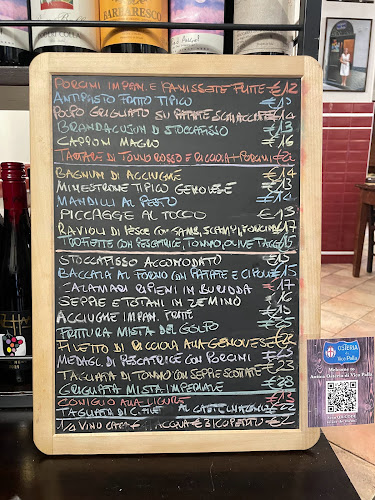 BARBARESCO
PORCINI IMPAN. E FAMISSETE FRITE €12
ANTIPASTO FORTO TIPICO
POLPO GRIGLIATO SU PATATE SCHIACCIATE €14
BRANDACUJUN DI STOCCAFISSO €13
CAPPON MAGRO €16
TARTARE DI TONNO ROSSO E RICCIOLA + PORCINI
BAGNUN DI ACCIUGHE €14
MINESTRONE TIPICO GENOVESE €13
MANDILLI AL PESTO €14
PICCAGGE AL TOCCO €13
RAVIOLI DI PESCE CON GAMB, SCAMPI, €17
TROFIETTE CON PESCATRICE, TONNO, OLIVE TAGG €15
STOCCAFISSO ACCOMODATO €15
BACCALA AL FORNO CON PATATE E CIPOLLE €15
CALAMARI RIPIENI IN BURIDDA €17
SEPPIE E TOTANI IN ZEMINO €16
ACCIUGHE IMPAN. FRITE
FRITTURA MISTA DEL GOLFO
FILETTO DI RICCIOLA ALLA GENOVESE
MEDAGL. DI PESCATRICE CON PORCINI
TAGLIATA DI TONNO CON SEPPIE SCOTTATE €23
GRIGLIATA MISTA IMPERIALE €28
CONIGLIO ALLA LIGURE €13
TAGLIATA DI AL CASTELMAGNO
1/2 VINO ACQUA €3 COPERTO €2
OSTERIA
Vico Palla
Welcome to
Antica Osteria di Vico Palla